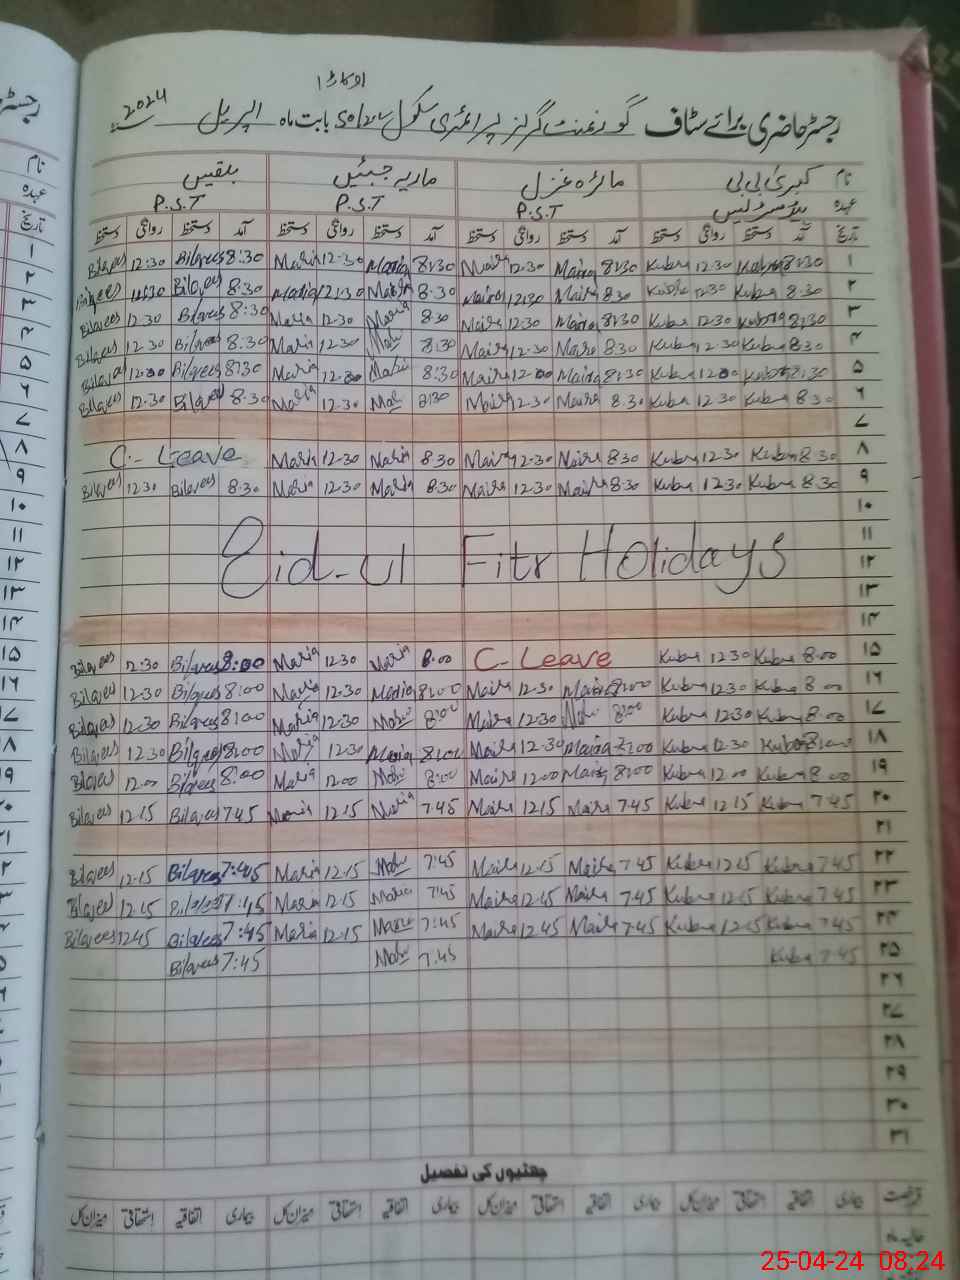 اوکاڑا
رجسٹر حاضری برائے سٹاف گورنمنٹ گرلز پرائمری سکول بابت ماہ اپریل 2024
نام کبریٰ بی بی مائرہ غزل ماریہ جبیں بلقیس
عہدہ ہیڈمسٹریس P.S.T P.S.T P.S.T
تاریخ آمد دستخط روانگی دستخط آمد دستخط روانگی دستخط آمد دستخط روانگی دستخط آمد دستخط روانگی دستخط
۱ 8:30 Kubra 12.30 Kubra 8:30 Maira 12.30 Maira 8:30 Maria 12.30 Maria 8:30 Bilqees 12:30 Bilqees
۲ 8.30 Kubra 12.30 Kubra 8.30 Maira 12:30 Maira 8.30 Maria 12:30 Maria 8.30 Bilqees Bilqees
۳ 8:30 Kubra 12.30 Kubra 8:30 Maira 12.30 Maira 8.30 Maria 12.30 Maria 8:30 Bilqees 12.30 Bilqees
۴ 8.30 Kubra 12.30 Kubra 8.30 Maira 12.30 Maira 8:30 12.30 Maria 8.30 Bilqees 12.30 Bilqees
۵ 8:30 Kubra 12.00 Kubra 8:30 Maira 12.00 Maira 8:30 Maria 12.00 Maria 8:30 Bilqees 12.00 Bilqees
۶ 8.30 Kubra 12.30 Kubra 8.30 Maira 12.30 Maira 8:30 12.30 Maria 8.30 Bilqees 12.30 Bilqees
۷
۸ 8.30 Kubra 12.30 Kubra 8.30 Maira 12.30 Maira 8.30 Maria 12.30 Maria C.- Leave
۹ 8.30 Kubra 12.30 Kubra 8.30 Maira 12.30 Maira 8.30 Maria 12.30 Maria 8.30 Bilqees 12.30 Bilqees
۱۰
۱۱
Eid-ul Fitr Holidays
۱۲
۱۳
۱۴
۱۵ 8.00 Kubra 12.30 Kubra C- Leave 8.00 Maria 12.30 Maria 8:00 Bilqees 12.30 Bilqees
۱۶ 8.00 Kubra 12.30 Kubra 8:00 Maira 12.30 Maira 8:00 Maria 12.30 Maria 8:00 Bilqees 12.30 Bilqees
۱۷ 8.00 Kubra 12.30 Kubra 8:00 12.30 Maira 8:00 12.30 Maria 8:00 Bilqees 12.30 Bilqees
۱۸ 8:00 Kubra 12.30 Kubra 8:00 Maira 12.30 Maira 8:00 Maria 12.30 Maria 8:00 Bilqees 12.30 Bilqees
۱۹ 8.00 Kubra 12.00 Kubra 8:00 Maira 12.00 Maira 8:00 12.00 Maria 8:00 Bilqees 12.00 Bilqees
۲۰ 7.45 Kubra 12.15 Kubra 7.45 Maira 12.15 Maira 7.45 Maria 12.15 Maria 7.45 Bilqees 12.15 Bilqees
۲۱
۲۲ 7.45 Kubra 12.15 Kubra 7.45 Maira 12.15 Maira 7:45 12.15 Maria 7:45 Bilqees 12.15 Bilqees
۲۳ 7.45 Kubra 12.15 Kubra 7.45 Maira 12.15 Maira 7:45 Maria 12.15 Maria 7:45 Bilqees 12.15 Bilqees
۲۴ 7.45 Kubra 12.15 Kubra 7.45 Maira 12.45 Maira 7:45 Maria 12.15 Maria 7:45 Bilqees 12.45 Bilqees
۲۵ 7.45 Kubra 7.45 7:45 Bilqees
۲۶
۲۷
۲۸
۲۹
۳۰
۳۱
چھٹیوں کی تفصیل
رخصت بیماری اتفاقیہ استحقاقی میزان کل بیماری اتفاقیہ استحقاقی میزان کل بیماری اتفاقیہ استحقاقی میزان کل بیماری اتفاقیہ استحقاقی میزان کل
حالیہ ماہ
25-04-24 08:24